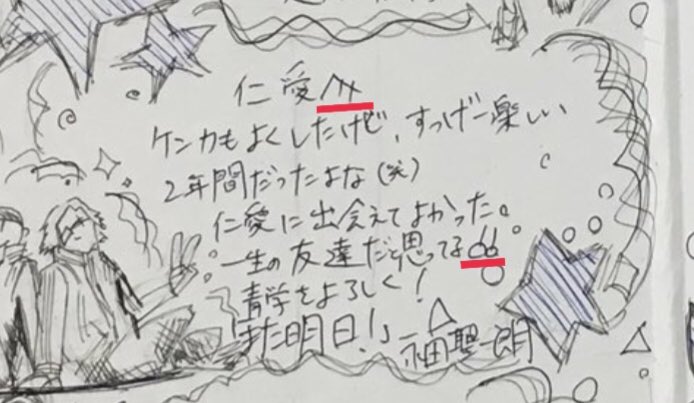 仁愛へ
ケンカもよくしたけど、すっげー楽しい
2年間だったよな(笑)
仁愛に出会えてよかった。
一生の友達だと思ってる
青学をよろしく!
「また明日!」 永田聖一朗